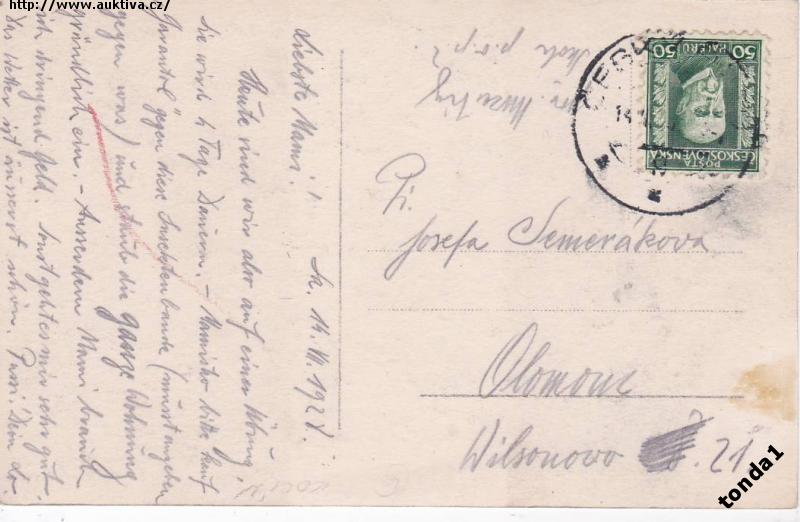 http://www.auktiva.cz/
Liebste Mami!
Sk. 14. VI. 1928.
Heute sind wir also auf einer Übung,
die wird 4 Tage dauern. - Mamsko bitte kauf
"Inantol" gegen diese Insektenbande (musst angeben
gegen was) und staube die ganze Wohnung
gründlich ein. - Ausserdem Mami brauch
ich dringend Geld. Sonst geht es mir sehr gut.
Das Wetter ist äusserst schön. Pussi Dein
50 HALÉŘŮ 50
POŠTA
ČESKOSLOVENSKÁ
Pí.
Josefa Semerákova
Olomouc
Wilsonovo 21
tonda1